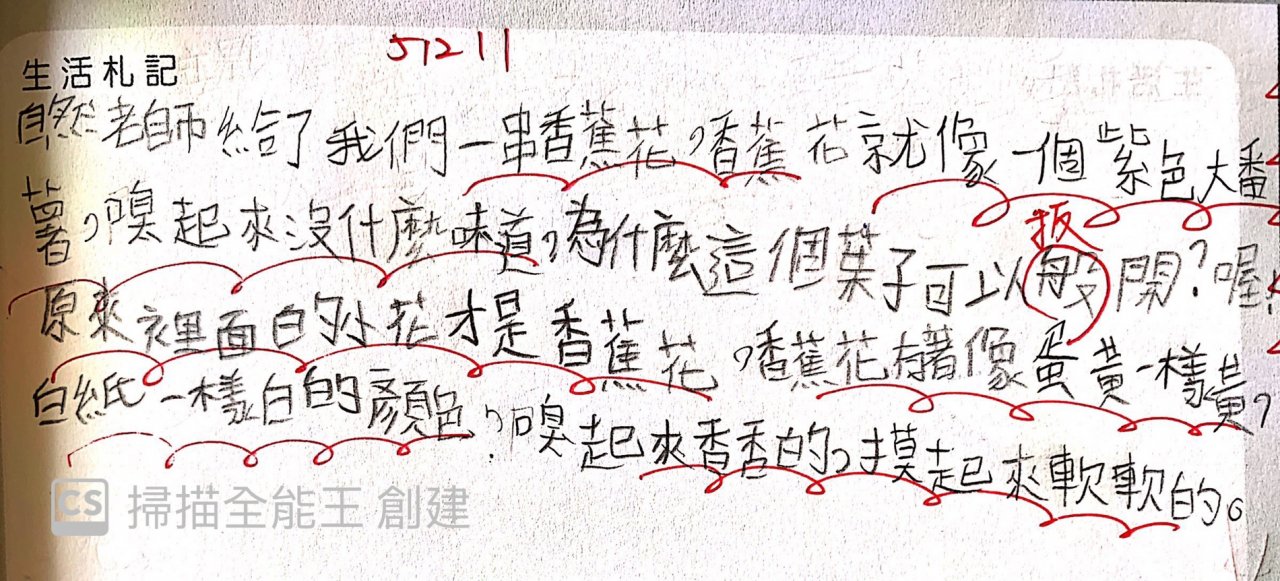 51211
生活札記
自然老師給了我們一串香蕉花,香蕉花就像一個紫色大番
薯,嗅起來沒什麼味道,為什麼這個葉子可以般開?喔!
扳
原來裡面白的小花才是香蕉花,香蕉花有著像蛋黃一樣黃,
白紙一樣白的顏色,嗅起來香香的,摸起來軟軟的。
CS 掃描全能王 創建